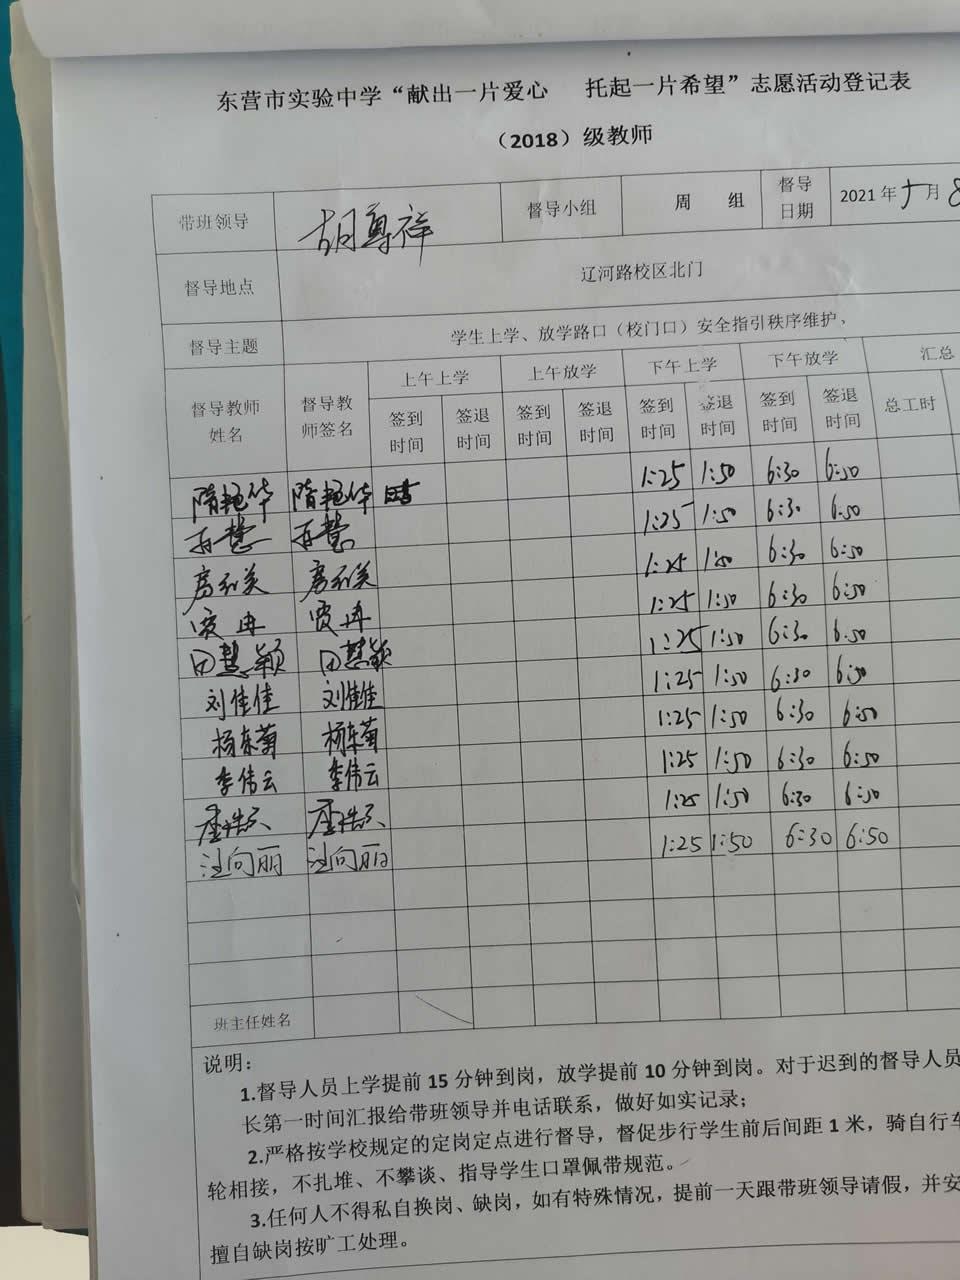 东营市实验中学“献出一片爱心 托起一片希望”志愿活动登记表
（2018）级教师
带班领导 胡尊祥 督导小组 周 组 督导日期 2021年 月
督导地点 辽河路校区北门
督导主题 学生上学、放学路口（校门口）安全指引秩序维护、
督导教师姓名 督导教师签名 上午上学 上午放学 下午上学 下午放学 汇总
签到时间 签退时间 签到时间 签退时间 签到时间 签退时间 签到时间 签退时间 总工时
隋艳华 隋艳华 1:25 1:50 6:30 6:50
1:25 1:50 6:30 6:50
1:25 1:50 6:30 6:50
贾冉 贾冉 1:25 1:50 6:30 6:50
田慧颖 田慧颖 1:25 1:50 6:30 6:50
刘佳佳 刘佳佳 1:25 1:50 6:30 6:50
杨东菊 杨东菊 1:25 1:50 6:30 6:50
李伟云 李伟云 1:25 1:50 6:30 6:50
1:25 1:50 6:30 6:50
汪向丽 汪向丽 1:25 1:50 6:30 6:50
班主任姓名
说明：
1.督导人员上学提前15分钟到岗，放学提前10分钟到岗。对于迟到的督导人员
长第一时间汇报给带班领导并电话联系，做好如实记录；
2.严格按学校规定的定岗定点进行督导，督促步行学生前后间距1米，骑自行车
轮相接，不扎堆、不攀谈、指导学生口罩佩带规范。
3.任何人不得私自换岗、缺岗，如有特殊情况，提前一天跟带班领导请假，并安
擅自缺岗按旷工处理。